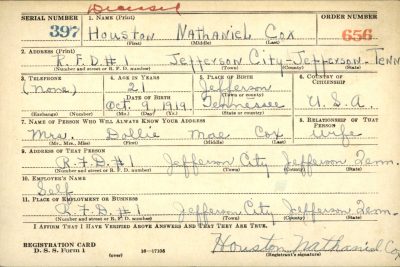 Deceased
SERIAL NUMBER 1. NAME (Print) ORDER NUMBER
397 Houston Nathaniel Cox 656
(First) (Middle) (Last)
2. ADDRESS (Print)
R.F.D. #1 Jefferson City - Jefferson. Tenn
(Number and street or R. F. D. number) (Town) (County) (State)
3. TELEPHONE 4. AGE IN YEARS 5. PLACE OF BIRTH 6. COUNTRY OF CITIZENSHIP
(none) 21 Jefferson
DATE OF BIRTH (Town or county)
Oct. 9, 1919. Tennessee U.S.A.
(Exchange) (Number) (Mo.) (Day) (Yr.) (State or country)
7. NAME OF PERSON WHO WILL ALWAYS KNOW YOUR ADDRESS 8. RELATIONSHIP OF THAT PERSON
Mrs. Dollie Mae Cox Wife
(Mr., Mrs., Miss) (First) (Middle) (Last)
9. ADDRESS OF THAT PERSON
R.F.D. #1 Jefferson City Jefferson Tenn.
(Number and street or R. F. D. number) (Town) (County) (State)
10. EMPLOYER'S NAME
Self
11. PLACE OF EMPLOYMENT OR BUSINESS
R.F.D. #1 Jefferson City Jefferson Tenn.
(Number and street or R. F. D. number) (Town) (County) (State)
I AFFIRM THAT I HAVE VERIFIED ABOVE ANSWERS AND THAT THEY ARE TRUE.
REGISTRATION CARD
D. S. S. Form 1 16—17105 Houston Nathaniel Cox
(over) (Registrant's signature)